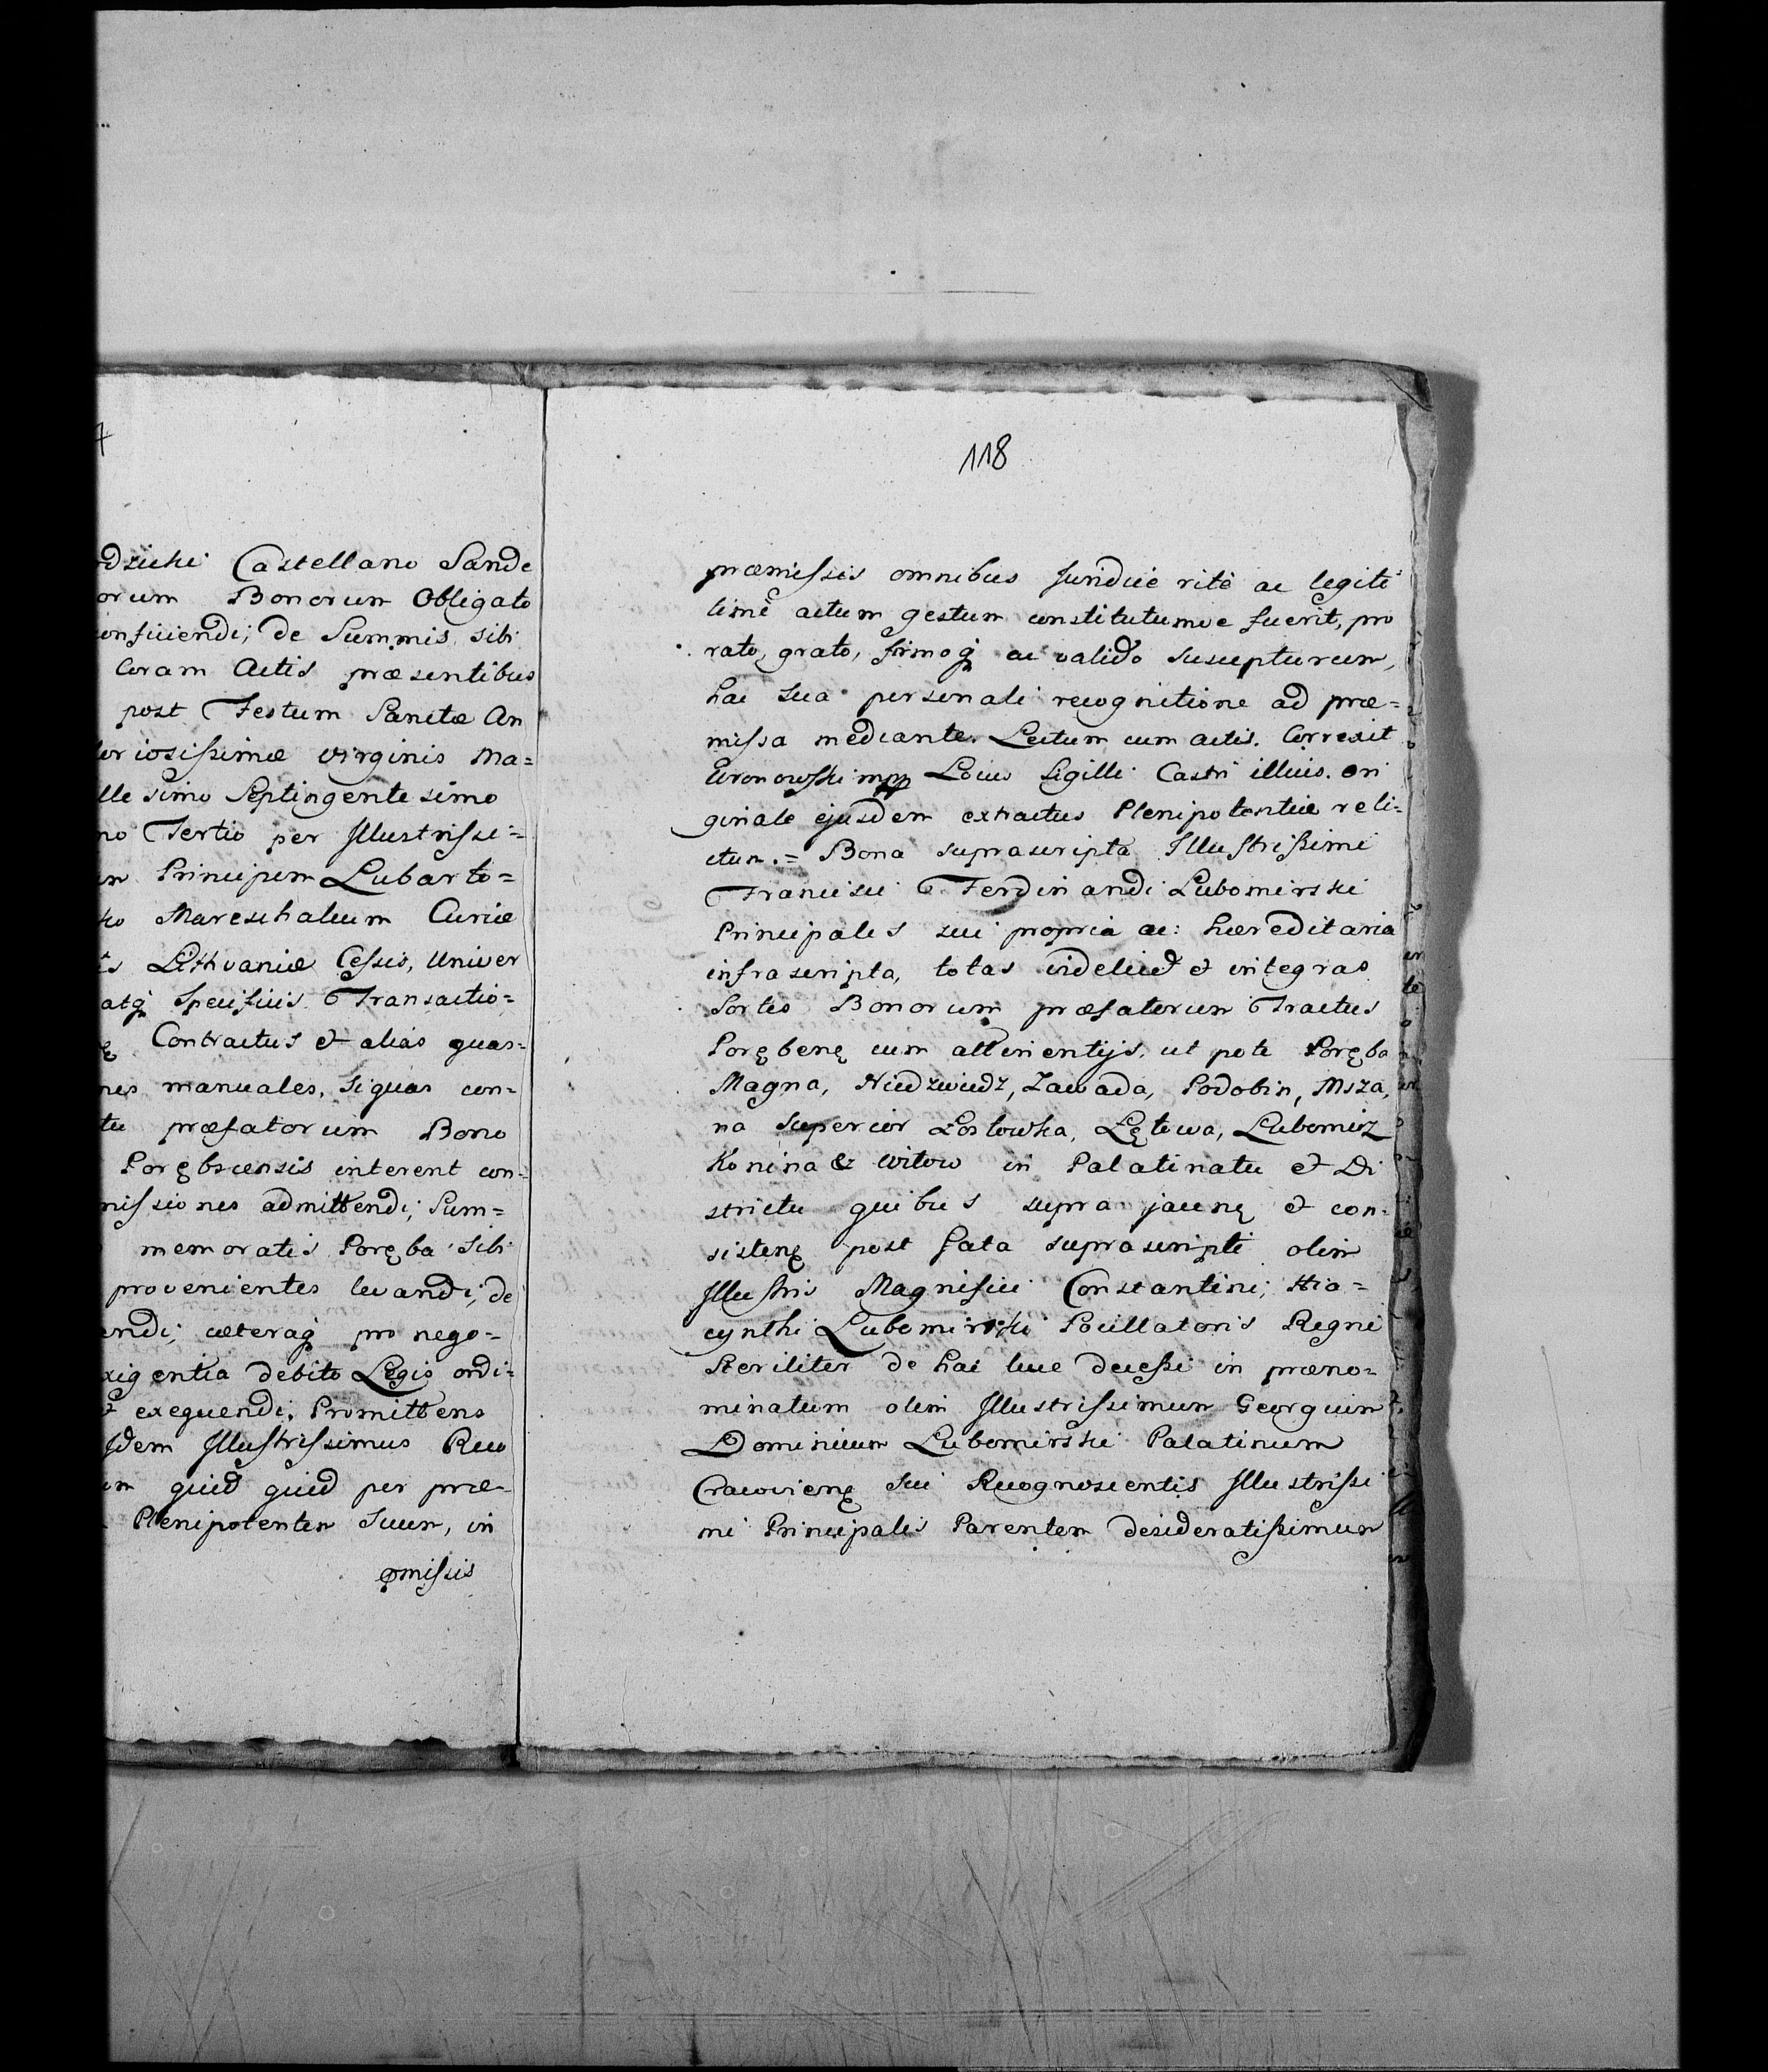 dzicki Castellano Sande
orum Bonorum Obligato
onficiendi; de Summis sibi
Coram Actis præsentibus
post Festum Sanctæ An
loriosissimæ Virginis Ma=
lle simo Septingente simo
no Tertio per Illustrissi=
m Principem Lubarto=
ko Mareschalcum Curiæ
s Lithvaniæ Cessis, Univer
atq̨ Specificis Transactio=
Contractus et alias quas=
nes manuales, siquas con=
tu præfatorum Bono
Porębscensis interent con=
missiones admittendi; Sum=
memoratis Poręba sibi
provenientes levandi; de
endi; cæteraq̨ pro nego=
xigentia debito Legis ordi=
et exequendi; Promittens
Idem Illustrissimus Reco
m quid quid per præ-
Plenipotentem Suum, in
p̱missis
118
præmissis omnibus Juridicè ritè ac legiti
timè actum gestum constitutumve fuerit, pro
rato, grato, firmoq̨ ac valido suscepturum,
hac sua personali recognitione ad præ=
missa mediante. Lectum cum actis. Correxit
Wronowski mpp Locus Sigilli Castri illius. Ori
ginale ejusdem extractus Plenipotentiæ reli=
ctum.= Bona suprascripta Illustrissimi
Francisci Ferdinandi Lubomirski
Principales sui propria ac: hæreditaria
infrascripta, totas videlicet et integras
Sortes Bonorum præfatorum Tractus
Porębenę cum attinentijs, ut pote Poręba
Magna, Niedzwiedz, Zawada, Podobin, Msza,
na Superior Łostowka, Łętowa, Lubomirz
Konina & Witow in Palatinatu et Di
strictu quibus supra jacenę et con=
sistenę post fata suprascripti olim
Illustris Magnifici Constantini; Hia=
cynthi Lubomirski Pocillatoris Regni
Steriliter de hac luce decessi in præno=
minatum olim Illustrissimum Georgium
Dominicum Lubomirski Palatinum
Cracovienę sui Recognoscentis Illustrissi
mi Principalis Parentem desideratissimum